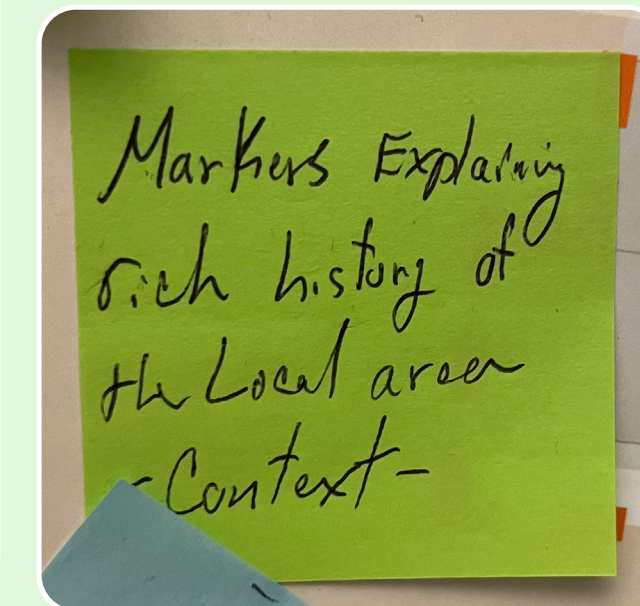 Markers Explaining
rich history of
the Local area
-Context-